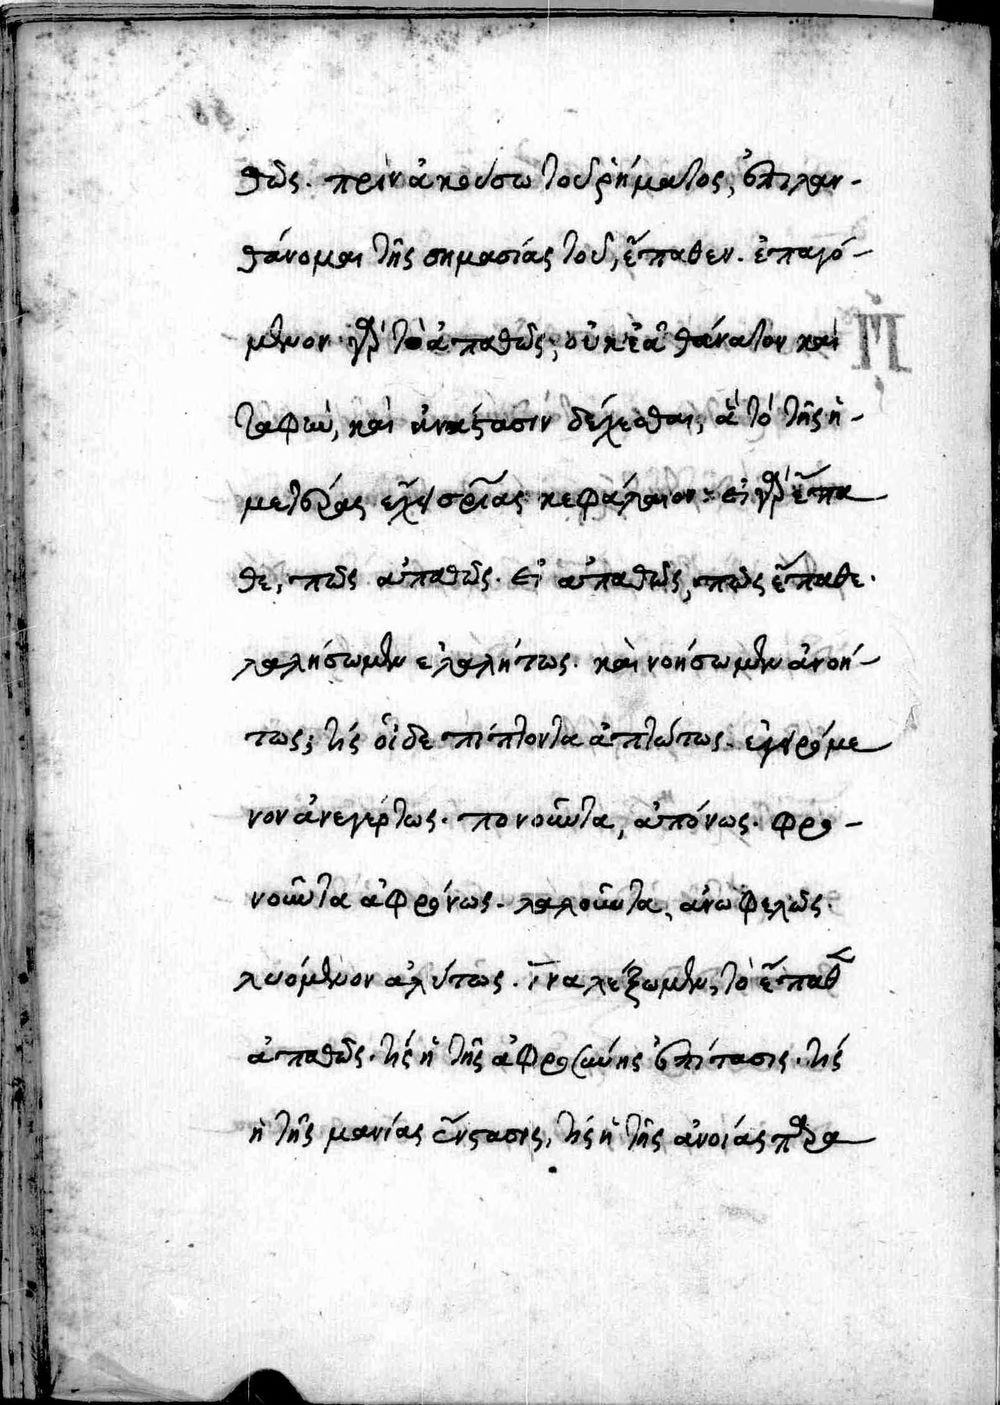 θῶς. πρὶν ἀκούσω τοῦ ῥήματος, ἐπιλαν-
θάνομαι τῆς σημασίας τοῦ, ἔπαθεν. ἐπαγό-
μενον γὰρ τὸ ἀπαθῶς, οὐκ ἐᾶ θάνατον καὶ
ταφὴν, καὶ ἀνάστασιν δέχεσθαι, ἃ τὸ τῆς ἡ-
μετέρας σριας κεφάλαιον: εἰ γὰρ ἔπα
θε, πῶς ἀπαθῶς. εἰ ἀπαθῶς, πῶς ἔπαθε.
λαλήσωμεν ἀλαλήτως. καὶ νοήσωμεν ἀνοή-
τως; τίς οἶδε πίπτοντα ἀπτώτως. ἐγειρόμε
νον ἀνεγέρτως. πονοῦντα, ἀπόνως. φρο-
νοῦντα ἀφρόνως. λαλοῦντα, ἀνωφελῶς.
λυόμενον ἀλύτως. ἵνα λέξωμεν, τὸ ἔπαθεν
ἀπαθῶς. τίς ἡ τῆς ἀφροσύνης ἐπίτασις. τίς
ἡ τῆς μανίας ἔνστασις, τίς ἡ τῆς ἀνοίας παρα